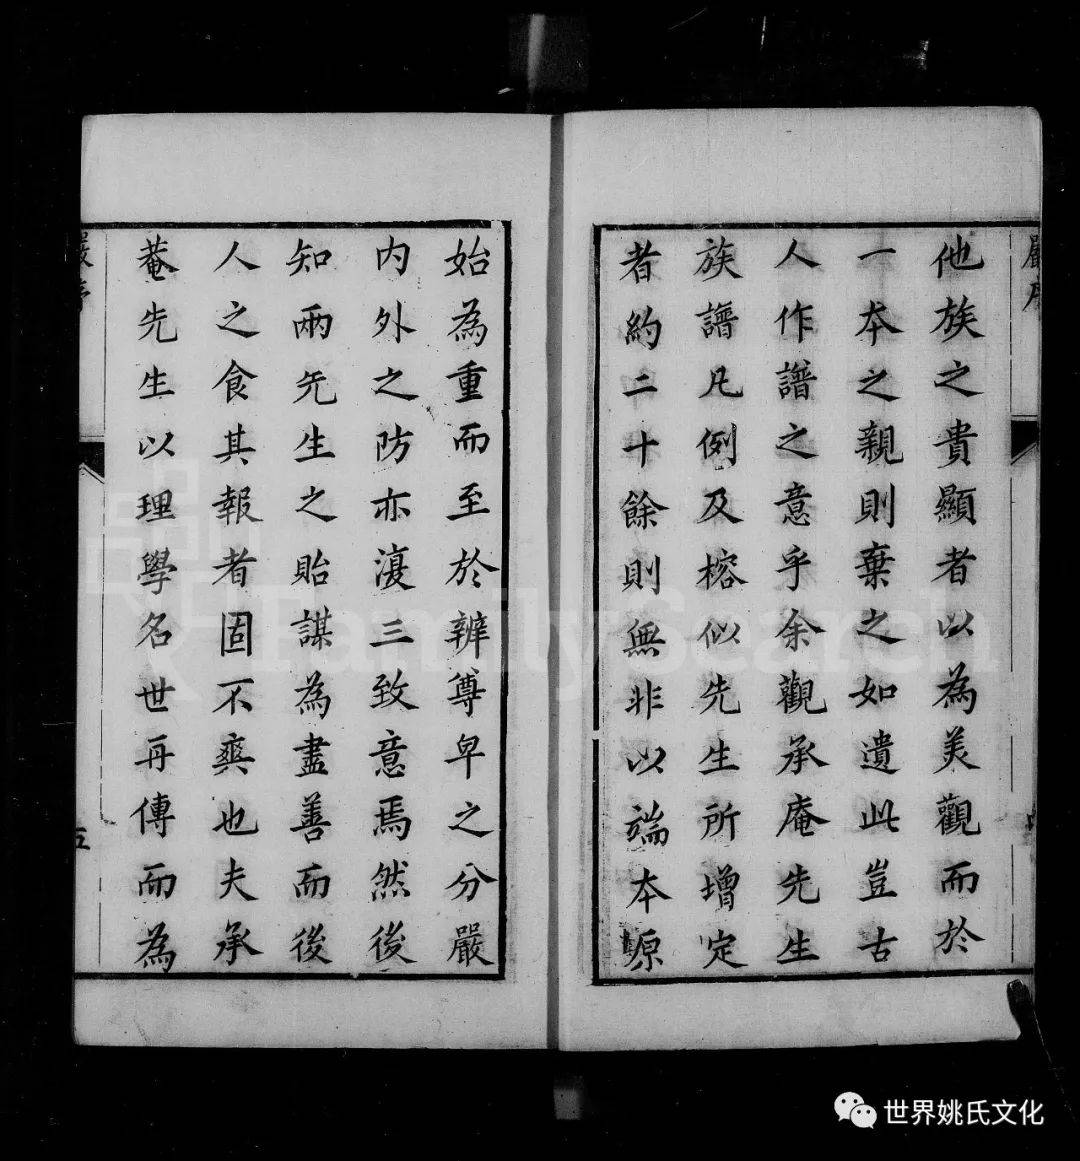 嚴序
他族之貴顯者以為美觀而於
一本之親則棄之如遺此豈古
人作譜之意乎余觀承庵先生
族譜凡例及榕似先生所增定
者約二十餘則無非以端本源
始為重而至於辨尊卑之分嚴
內外之防亦澓三致意焉然後
知兩先生之貽謀為盡善而後
人之食其報者固不爽也夫承
菴先生以理學名世再傳而為
嚴序
五
FamilySearch
世界姚氏文化